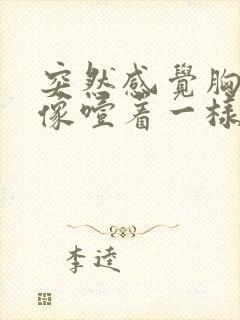 突然感覺胸
像噎着一樣
李逵